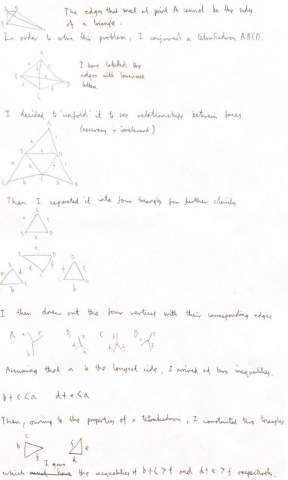 The edges that meet at point A cannot be the sides
of a triangle.
In order to solve this problem, I conjured a tetrahedron ABCD.
I have labelled the
edges with lowercase
letters.
I decided to 'unfold' it to see relationships between faces.
Then I separated it into four triangles for further clarity
I then drew out the four vertices with their corresponding edges
Assuming that a is the longest side, I arrived at two inequalities.
b + c < a d + e < a
Then, owing to the properties of a tetrahedron, I constructed two triangles
which gave the inequalities of b + c > f and d + e > f respectively.